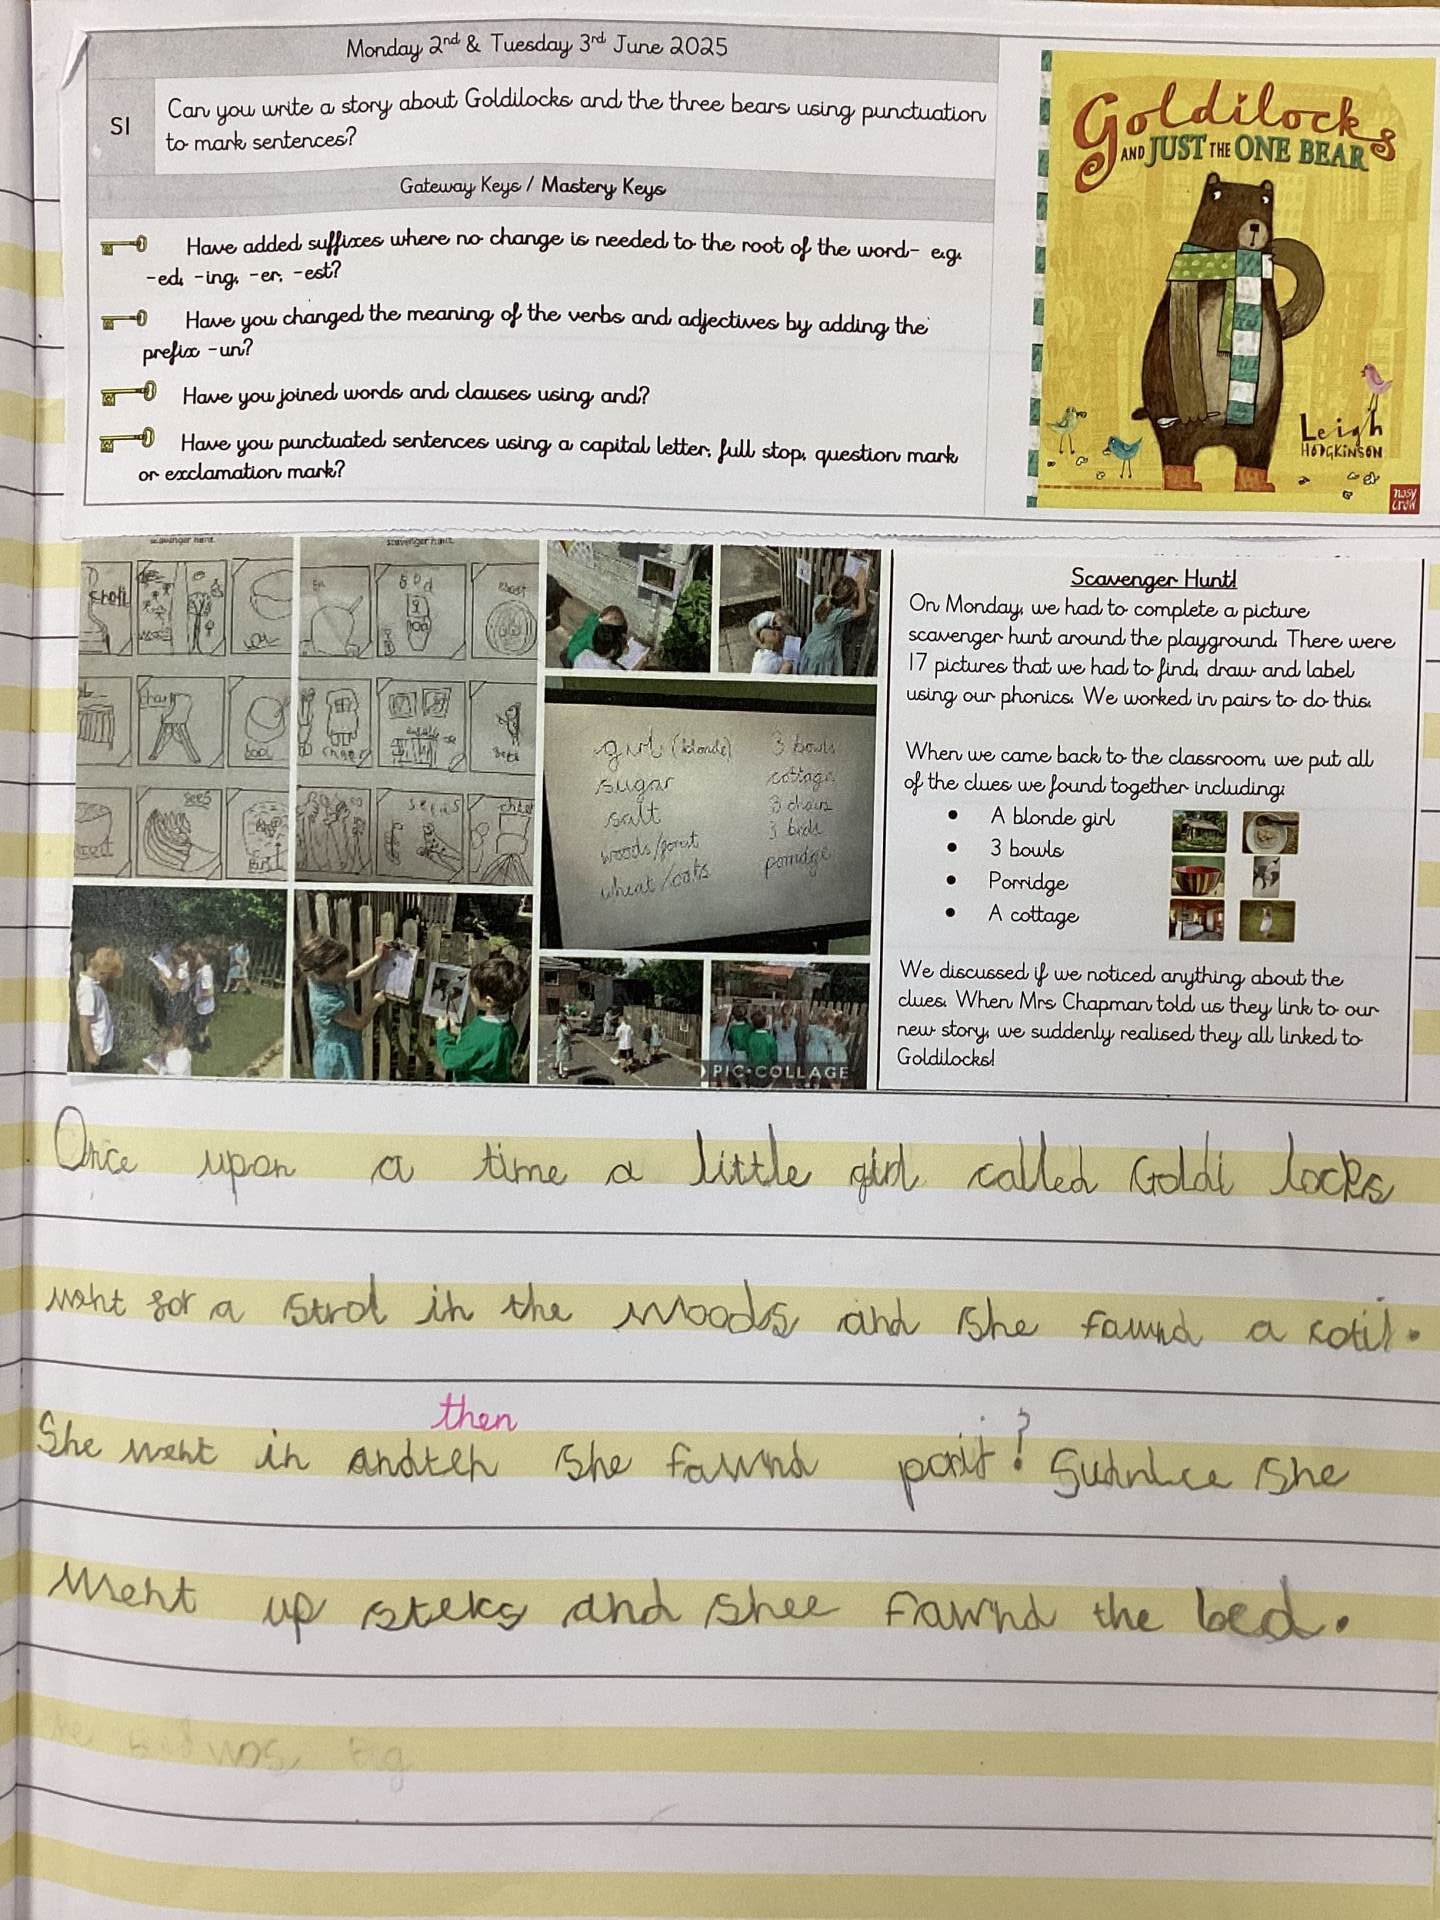 Monday 2nd & Tuesday 3rd June 2025
SI
Can you write a story about Goldilocks and the three bears using punctuation
to mark sentences?
Gateway Keys / Mastery Keys
Have added suffixes where no change is needed to the root of the word- e.g.
-ed, -ing, -er, -est?
Have you changed the meaning of the verbs and adjectives by adding the
prefix -un?
Have you joined words and clauses using and?
Have you punctuated sentences using a capital letter, full stop, question mark
or exclamation mark?
Goldilocks
AND JUST THE ONE BEAR
Leigh
HODGKINSON
nosy
crow
scavenger hunt
scavenger hunt
girl (blonde)
sugar
salt
woods/forest
wheat/oats
3 bowls
cottage
3 chairs
3 beds
porridge
PIC•COLLAGE
Scavenger Hunt!
On Monday, we had to complete a picture
scavenger hunt around the playground. There were
17 pictures that we had to find, draw and label
using our phonics. We worked in pairs to do this.
When we came back to the classroom, we put all
of the clues we found together including:
• A blonde girl
• 3 bowls
• Porridge
• A cottage
We discussed if we noticed anything about the
clues. When Mrs Chapman told us they link to our
new story, we suddenly realised they all linked to
Goldilocks!
Once upon a time a little girl called Goldi locks
went for a strol in the woods and she fawnd a cotij.
then
She went in andteh she fawnd porij? Sudnlee she
went up steks and shee fawnd the bed.